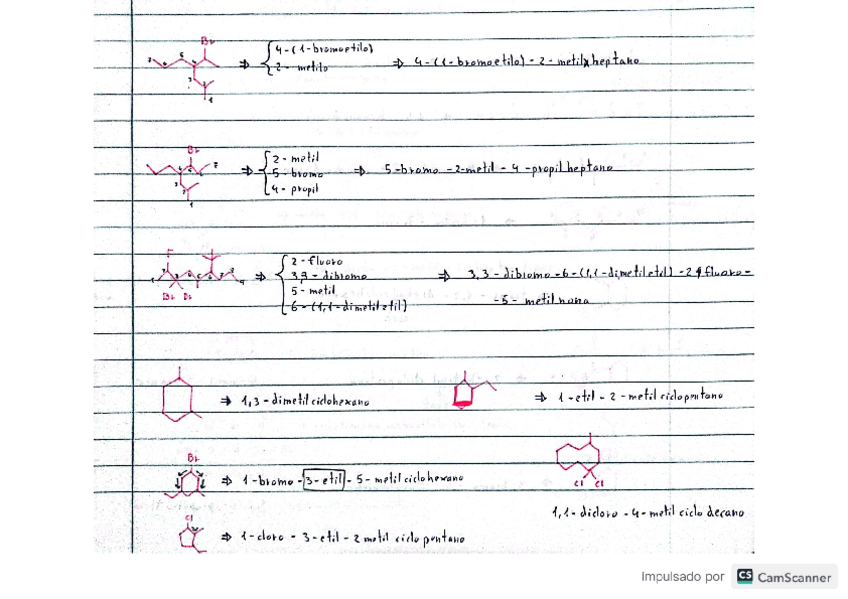 Br
⇒ { 4-(1-bromoetilo)
2- metilo
⇒ 4-(1-bromoetilo)-2-metil heptano
Br
⇒ { 2-metil
5-bromo
4-propil
⇒ 5-bromo-2-metil-4-propil heptano
F
Br Br
⇒ { 2-fluoro
3,3-dibromo
5-metil
6-(1,1-dimetiletil)
⇒ 3,3-dibromo-6-(1,1-dimetiletil)-2 fluoro-
-5-metilnona
⇒ 1,3-dimetil ciclohexano
⇒ 1-etil-2-metil ciclopentano
Br
⇒ 1-bromo-3-etil-5-metil ciclohexano
Cl Cl
1,1-dicloro-4-metil ciclo decano
Cl
⇒ 1-cloro-3-etil-2 metil ciclo pentano
Impulsado por CS CamScanner